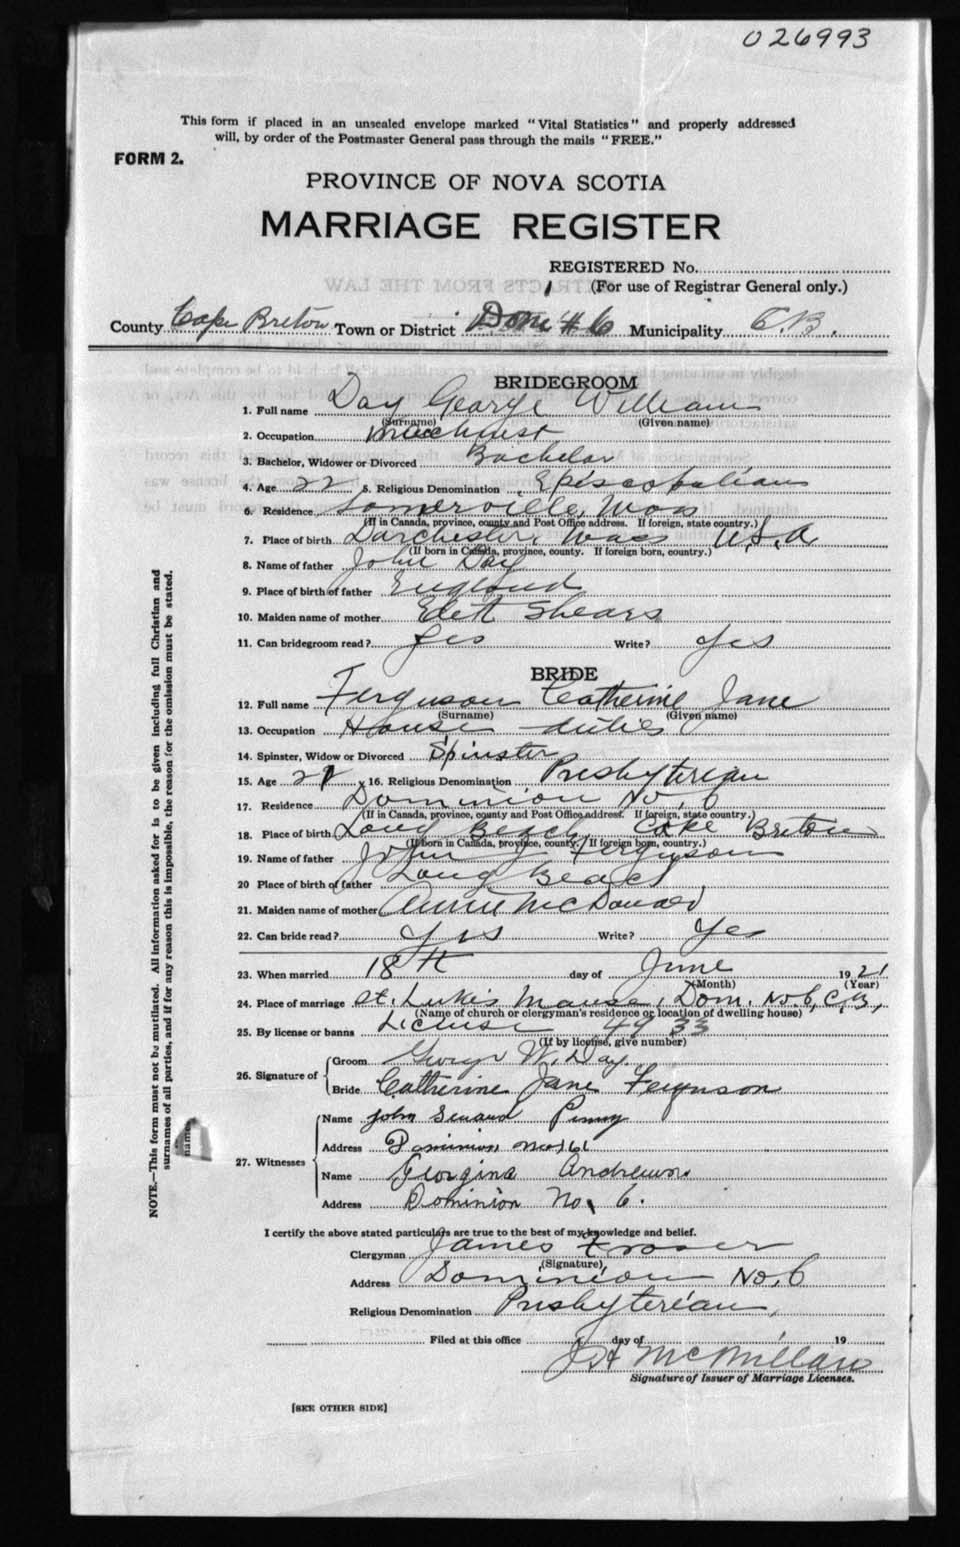 026993
This form if placed in an unsealed envelope marked "Vital Statistics" and properly addressed
will, by order of the Postmaster General pass through the mails "FREE."
FORM 2.
PROVINCE OF NOVA SCOTIA
MARRIAGE REGISTER
REGISTERED No.
(For use of Registrar General only.)
County Cape Breton Town or District Dom # 6 Municipality C.B.
BRIDEGROOM
1. Full name Day George William
(Surname) (Given name)
2. Occupation Machinist
3. Bachelor, Widower or Divorced Bachelor
4. Age 22 5. Religious Denomination Episcopalian
6. Residence Somerville, Mass
(If in Canada, province, county and Post Office address. If foreign, state country.)
7. Place of birth Dorchester, Mass U.S.A
(If born in Canada, province, county. If foreign born, country.)
8. Name of father John Day
9. Place of birth of father England
10. Maiden name of mother Shears
11. Can bridegroom read? Yes Write? Yes
BRIDE
12. Full name Ferguson Catherine Jane
(Surname) (Given name)
13. Occupation House duties
14. Spinster, Widow or Divorced Spinster
15. Age 16. Religious Denomination Presbyterian
17. Residence Dominion No. 6
(If in Canada, province, county and Post Office address. If foreign, state country.)
18. Place of birth Long Beach, Cape Breton
(If born in Canada, province, county. If foreign born, country.)
19. Name of father John J Ferguson
20 Place of birth of father Long Beach
21. Maiden name of mother Annie McDonald
22. Can bride read? Yes Write? Yes
23. When married 18th day of June 1921
(Month) (Year)
24. Place of marriage St. Luke's Manse, Dom. No. 6, C.B.,
(Name of church or clergyman's residence or location of dwelling house)
25. By license or banns License 4933
(If by license, give number)
26. Signature of Groom George W. Day.
Bride Catherine Jane Ferguson
27. Witnesses Name John Penny
Address Dominion No 6
Name Georgina Andrews
Address Dominion No. 6.
I certify the above stated particulars are true to the best of my knowledge and belief.
Clergyman James Fraser
(Signature)
Address Dominion No. 6
Religious Denomination Presbyterian,
Filed at this office day of 19
J H McMillan
Signature of Issuer of Marriage Licenses.
[SEE OTHER SIDE]
NOTE.—This form must not be mutilated. All information asked for is to be given including full Christian and
surnames of all parties, and if for any reason this is impossible, the reason for the omission must be stated.
names